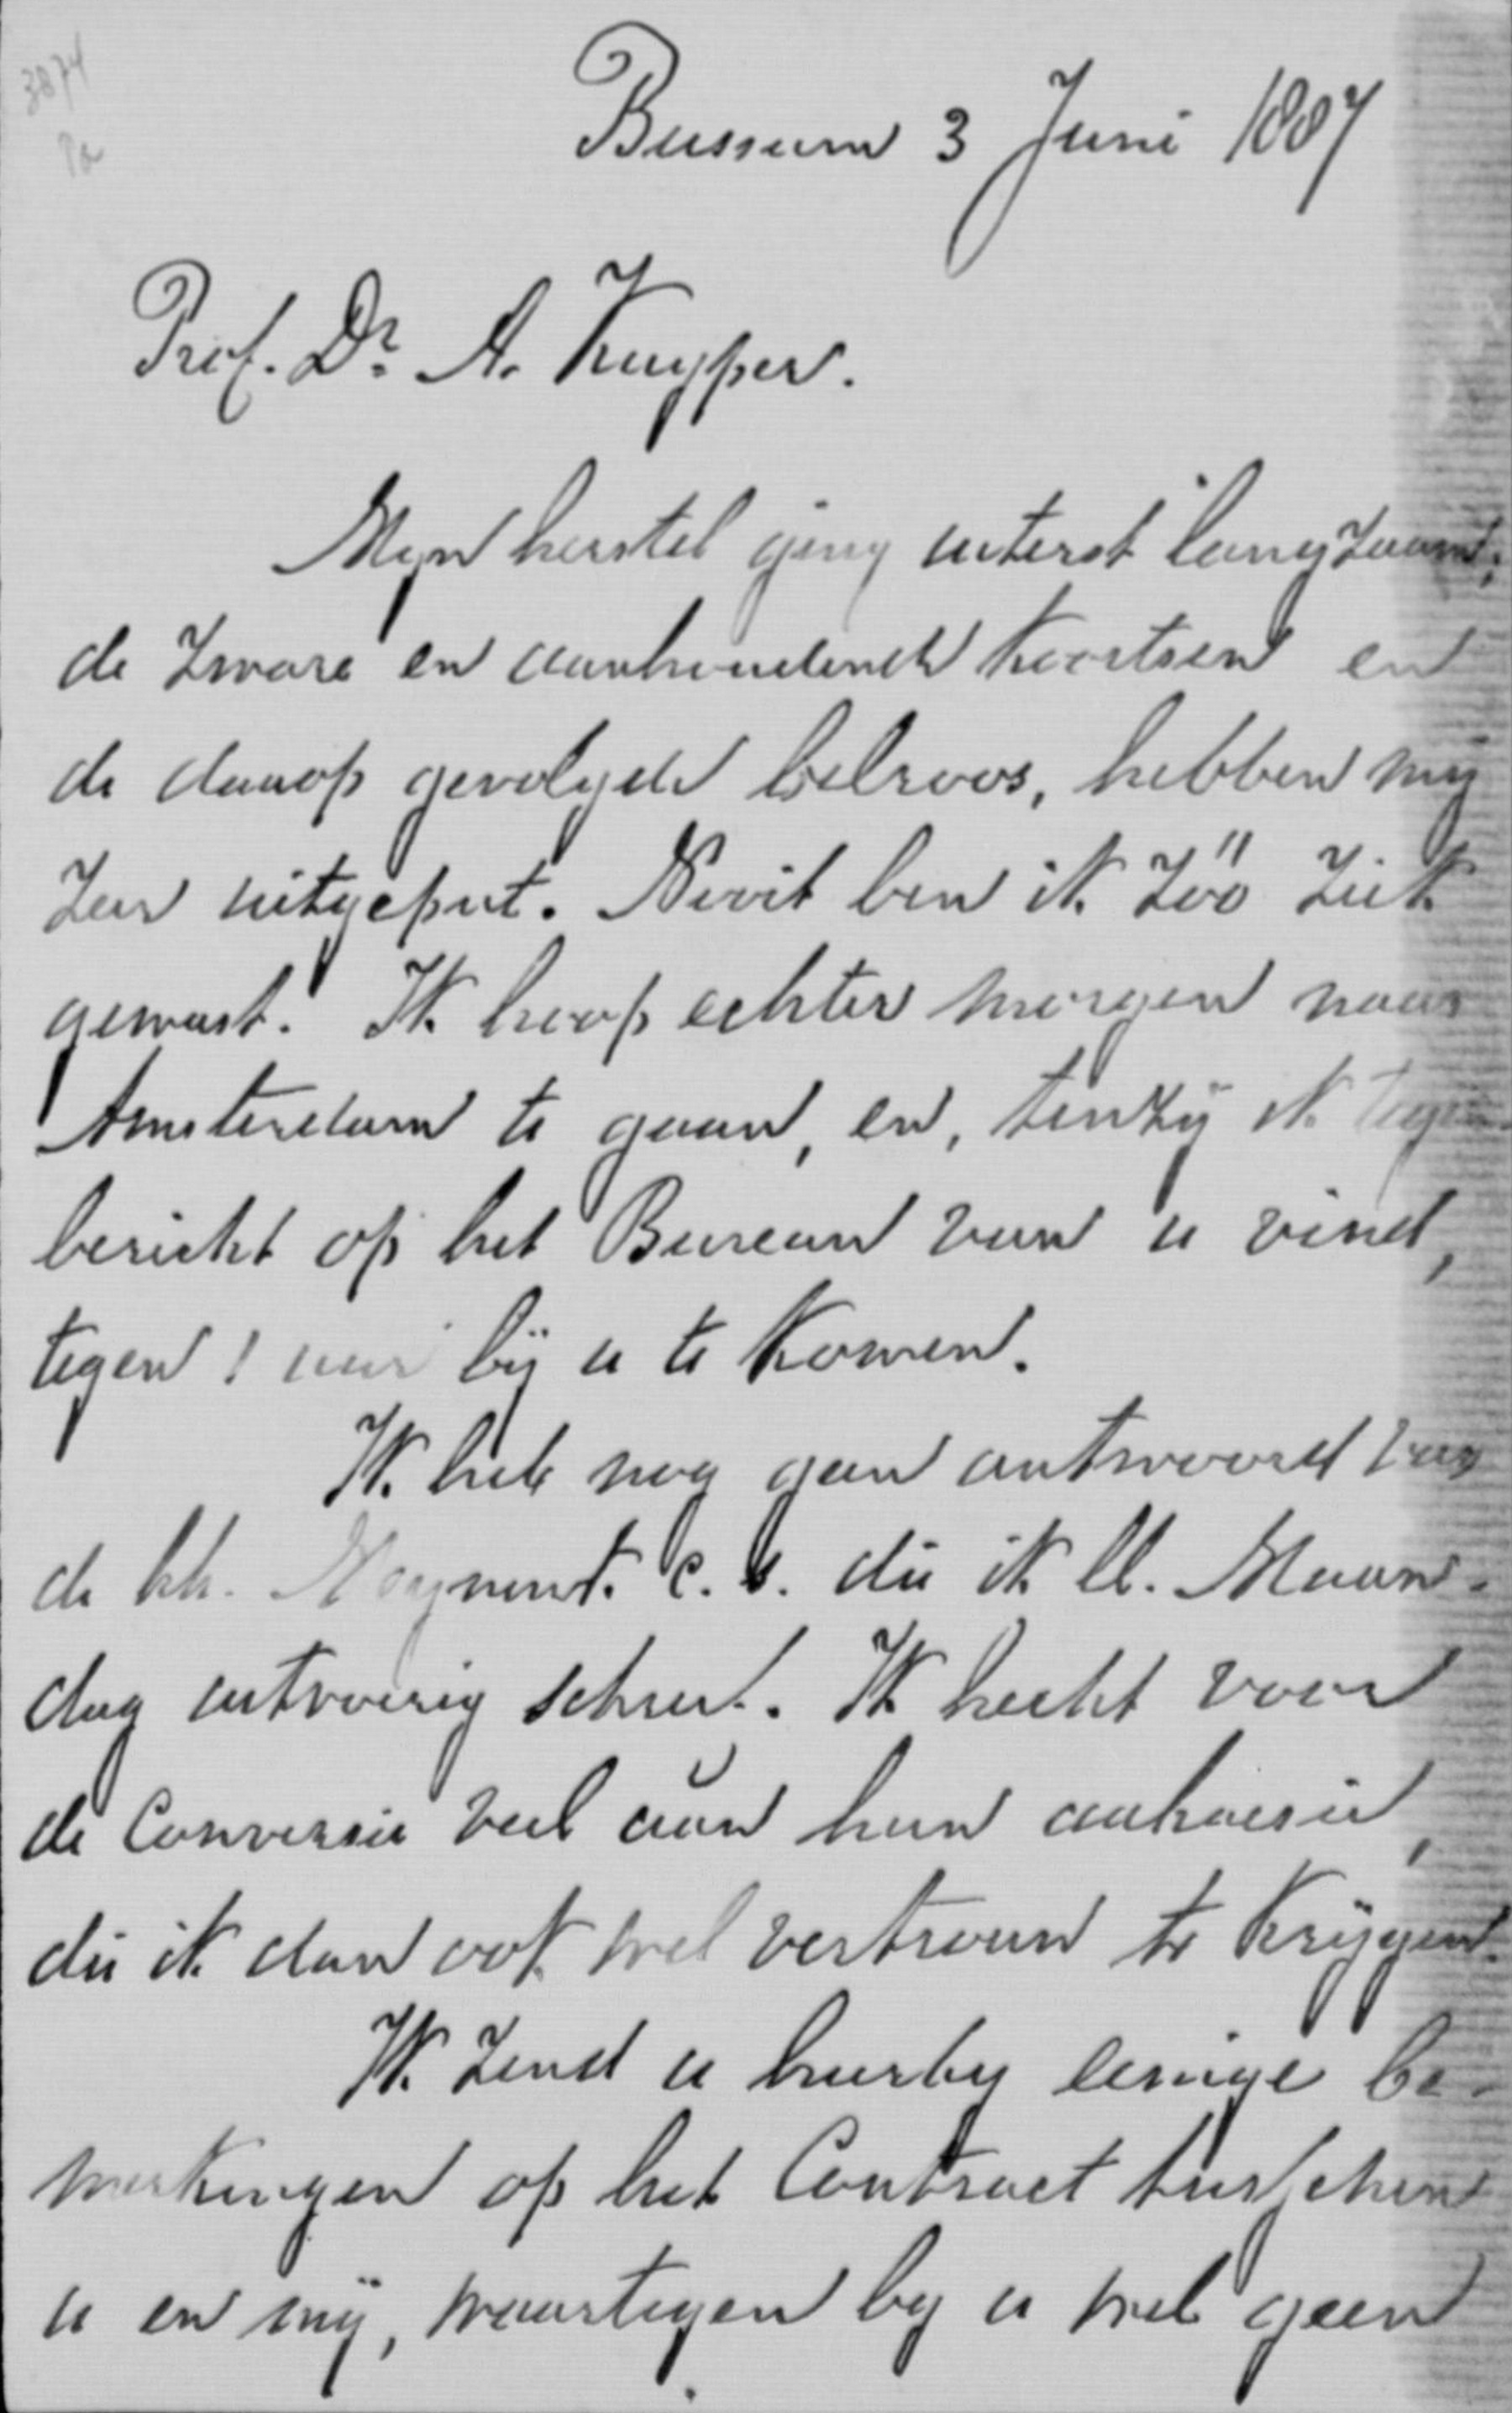 3874
Bussum 3 Juni 1887
Prof. Dr. A. Kuyper.
Mijn herstel ging uiterst langzaam;
de zware en aanhoudende koortsen en
de daarop gevolgde belroos, hebben mij
zeer uitgeput. Nooit ben ik zóó ziek
geweest. Ik hoop echter morgen naar
Amsterdam te gaan, en, tenzij ik tegen-
bericht op het Bureau van u vind,
tegen 1 uur bij u te komen.
Ik heb nog geen antwoord van
de hh. c.s. die ik ll. Maan-
dag uitvoerig schreef. Ik hecht voor
de Conversie veel aan hun adhaesie,
die ik dan ook wel vertrouw te krijgen.
Ik zend u hierby eenige be-
merkingen op het Contract tusschen
u en mij, waartegen by u wel geen